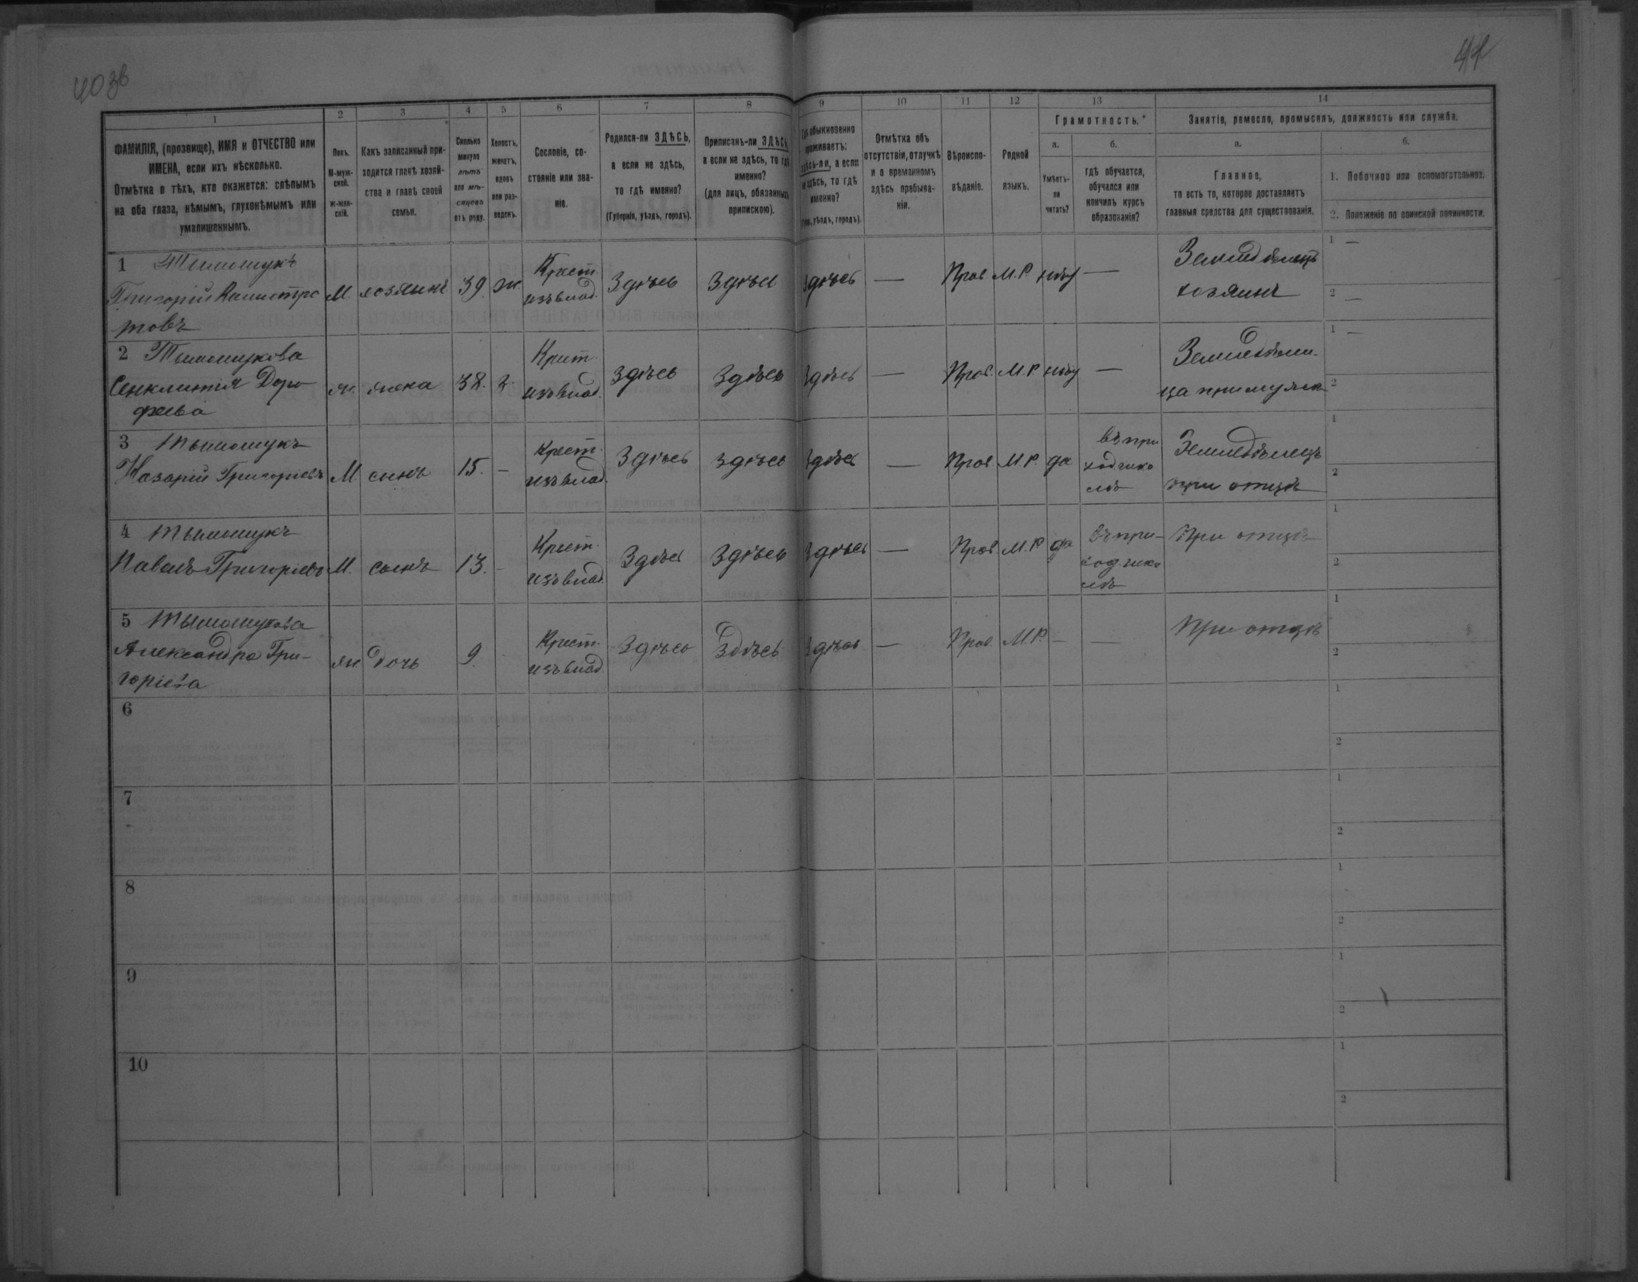 40 зв
44
1
2
3
4
5
6
7
8
9
10
11
12
13
14
ФАМИЛІЯ, (прозвище), ИМЯ и ОТЧЕСТВО или
ИМЕНА, если ихъ нѣсколько.
Отмѣтка о тѣхъ, кто окажется: слѣпымъ
на оба глаза, нѣмымъ, глухонѣмымъ или
умалишеннымъ.
Полъ.
М-муж-
ской.
ж-жен-
скій.
Какъ записанный при-
ходится главѣ хозяй-
ства и главѣ своей
семьи.
Сколько
минуло
лѣтъ
или мѣ-
сяцевъ
отъ роду.
Холостъ,
женатъ,
вдовъ
или раз-
веденъ.
Сословіе, со-
стояніе или зва-
ніе.
Родился-ли ЗДѢСЬ,
а если не здѣсь,
то гдѣ именно?
(Губернія, уѣздъ, городъ).
Приписанъ-ли ЗДѢСЬ,
а если не здѣсь, то гдѣ
именно?
(для лицъ, обязанныхъ
припискою).
обыкновенно
проживаетъ:
здѣсь-ли, а если
не здѣсь, то гдѣ
именно?
уѣздъ, городъ).
Отмѣтка объ
отсутствіи, отлучкѣ
и о временномъ
здѣсь пребыва-
ніи.
Вѣроиспо-
вѣданіе.
Родной
языкъ.
Грамотность.
а.
Умѣетъ-
ли
читать?
б.
гдѣ обучается,
обучался или
кончилъ курсъ
образованія?
Занятія, ремесло, промыселъ, должность или служба.
а.
Главное,
то есть то, которое доставляетъ
главныя средства для существованія.
б.
1. Побочное или вспомогательное.
2. Положеніе по воинской повинности.
1 Тымощукъ
Григорій Калистра
товъ
М хозяинъ 39 ж Крест. изъ влад. Здѣсь Здѣсь Здѣсь — Прав М.Р. нѣту —
Земледѣлецъ
хозяинъ
1 —
2 —
2 Тымощукова
Сенклитія Доро
феева
ж. жена 38. з. Крест. изъ влад. Здѣсь Здѣсь Здѣсь — Прав. М.Р. нѣту —
Земледѣли-
ца при мужѣ
1 —
2
3 Тымощукъ
Назарій Григорьевъ
М сынъ 15. — Крест. изъ влад. Здѣсь Здѣсь Здѣсь — Прав М.Р. да
въ при
ход шко
лѣ
Земледѣлецъ
при отцѣ
1
2
4 Тымощукъ
Павелъ Григорьевъ
М. сынъ 13. - Крест. изъ влад. Здѣсь Здѣсь Здѣсь — Прав М.Р. да
въ при-
ход шко
лѣ
При отцѣ
1
2
5 Тымощукова
Александра Гри-
горіева
ж дочь 9. Крест. изъ влад Здѣсь Здѣсь Здѣсь — Прав М.Р. — —
При отцѣ
1
2
6
1
2
7
1
2
8
1
2
9
1
2
10
1
2